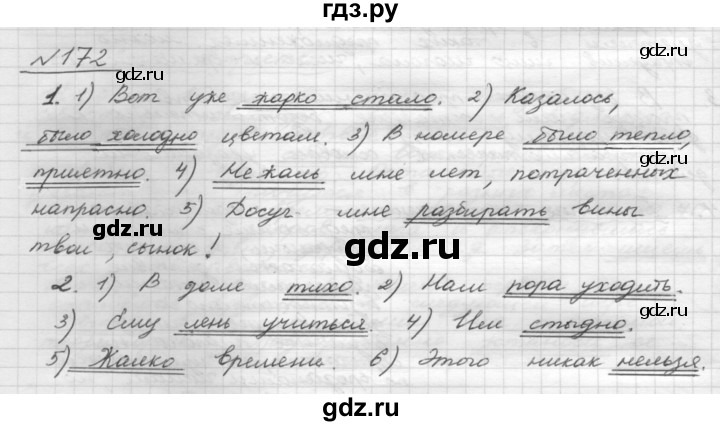 гдз.ру
№172
1. 1) Вот уже жарко стало. 2) Казалось,
было холодно цветам. 3) В номере было тепло,
приятно. 4) Не жаль мне лет, потраченных
напрасно. 5) Досуг мне разбирать вины
твои, сынок!
2. 1) В доме тихо. 2) Нам пора уходить.
3) Ему лень учиться. 4) Им стыдно.
5) Жалко времени. 6) Этого никак нельзя.
gdz.ru
gdz.ru
gdz.ru
gdz.ru
gdz.ru
gdz.ru
gdz.ru
gdz.ru